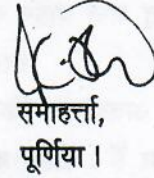 समाहर्त्ता,
पूर्णिया ।